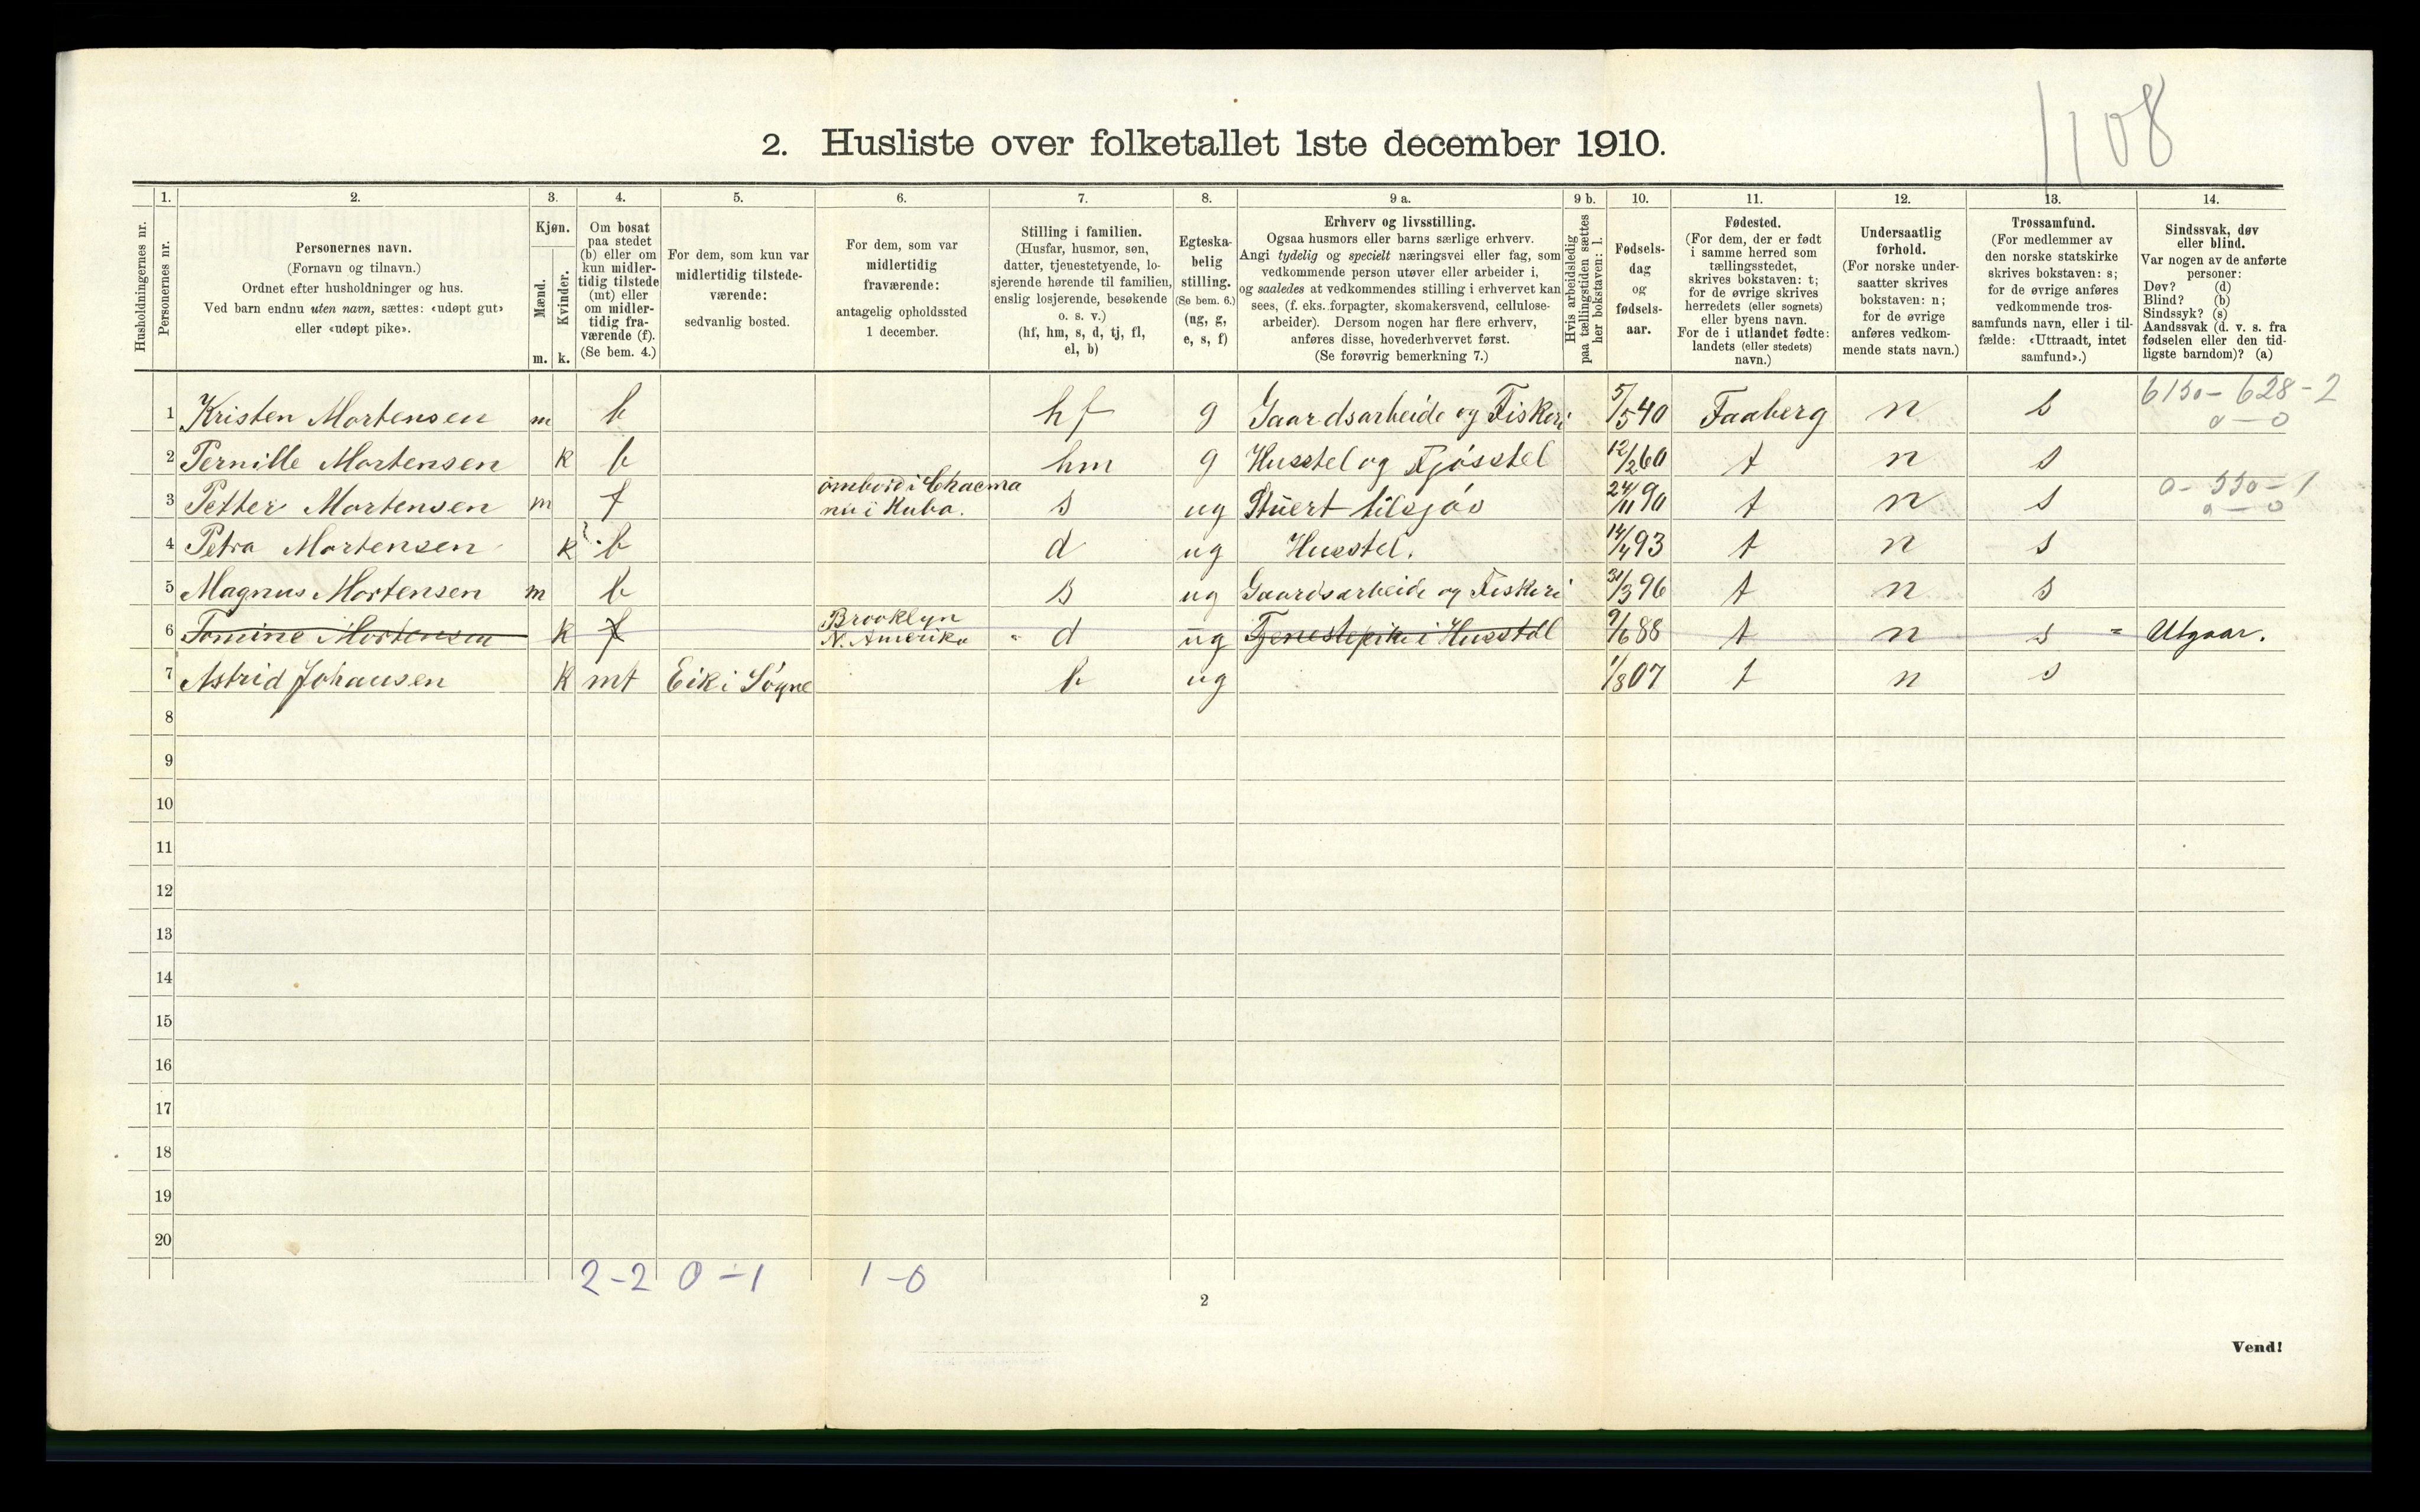 1108
2. Husliste over folketallet 1ste december 1910.
1. 2. 3. 4. 5. 6. 7. 8. 9 a. 9 b. 10. 11. 12. 13. 14.
Husholdningernes nr.
Personernes nr.
Personernes navn.
(Fornavn og tilnavn.)
Ordnet efter husholdninger og hus.
Ved barn endnu uten navn, sættes: «udøpt gut»
eller «udøpt pike».
Kjøn.
Mænd.
Kvinder.
m. k.
Om bosat
paa stedet
(b) eller om
kun midler-
tidig tilstede
(mt) eller
om midler-
tidig fra-
værende (f).
(Se bem. 4.)
For dem, som kun var
midlertidig tilstede-
værende:
sedvanlig bosted.
For dem, som var
midlertidig
fraværende:
antagelig opholdssted
1 december.
Stilling i familien.
(Husfar, husmor, søn,
datter, tjenestetyende, lo-
sjerende hørende til familien,
enslig losjerende, besøkende
o. s. v.)
(hf, hm, s, d, tj, fl,
el, b)
Egteska-
belig
stilling.
(Se bem. 6.)
(ug, g,
e, s, f)
Erhverv og livsstilling.
Ogsaa husmors eller barns særlige erhverv.
Angi tydelig og specielt næringsvei eller fag, som
vedkommende person utøver eller arbeider i,
og saaledes at vedkommendes stilling i erhvervet kan
sees, (f. eks. forpagter, skomakersvend, cellulose-
arbeider). Dersom nogen har flere erhverv,
anføres disse, hovederhvervet først.
(Se forøvrig bemerkning 7.)
Hvis arbeidsledig
paa tællingstiden sættes
her bokstaven: l.
Fødsels-
dag
og
fødsels-
aar.
Fødested.
(For dem, der er født
i samme herred som
tællingsstedet,
skrives bokstaven: t;
for de øvrige skrives
herredets (eller sognets)
eller byens navn.
For de i utlandet fødte:
landets (eller stedets)
navn.)
Undersaatlig
forhold.
(For norske under-
saatter skrives
bokstaven: n;
for de øvrige
anføres vedkom-
mende stats navn.)
Trossamfund.
(For medlemmer av
den norske statskirke
skrives bokstaven: s;
for de øvrige anføres
vedkommende tros-
samfunds navn, eller i til-
fælde: «Uttraadt, intet
samfund».)
Sindssvak, døv
eller blind.
Var nogen av de anførte
personer:
Døv? (d)
Blind? (b)
Sindssyk? (s)
Aandssvak (d. v. s. fra
fødselen eller den tid-
ligste barndom)? (a)
6150 - 628 - 2
0 - 0
1 Kristen Mortensen m b hf g Gaardsarbeide og Fiskeri 5/5 40 Faaberg n s
2 Pernille Mortensen k b hm g Husstel og Fjósstel 12/2 60 t n s
ombord i Chacma
0 - 550 - 1
0 - 0
3 Petter Mortensen m f nu i Kuba. s ug Stuert tilsjós 24/11 90 t n s
4 Petra Mortensen k b d ug Husstel. 14/4 93 t n s
5 Magnus Mortensen m b s ug Gaardsarbeide og Fiskeri 31/3 96 t n s
Brooklyn
6 Tomine Mortensen k f N. Amerika d ug Tjenestepike i Husstel 9/6 88 t n s = Utgaar.
7 Astrid Johansen k mt Eik i Sógne b ug 1/8 07 t n s
8
9
10
11
12
13
14
15
16
17
18
19
20
2-2 0-1 1-0
2
Vend!